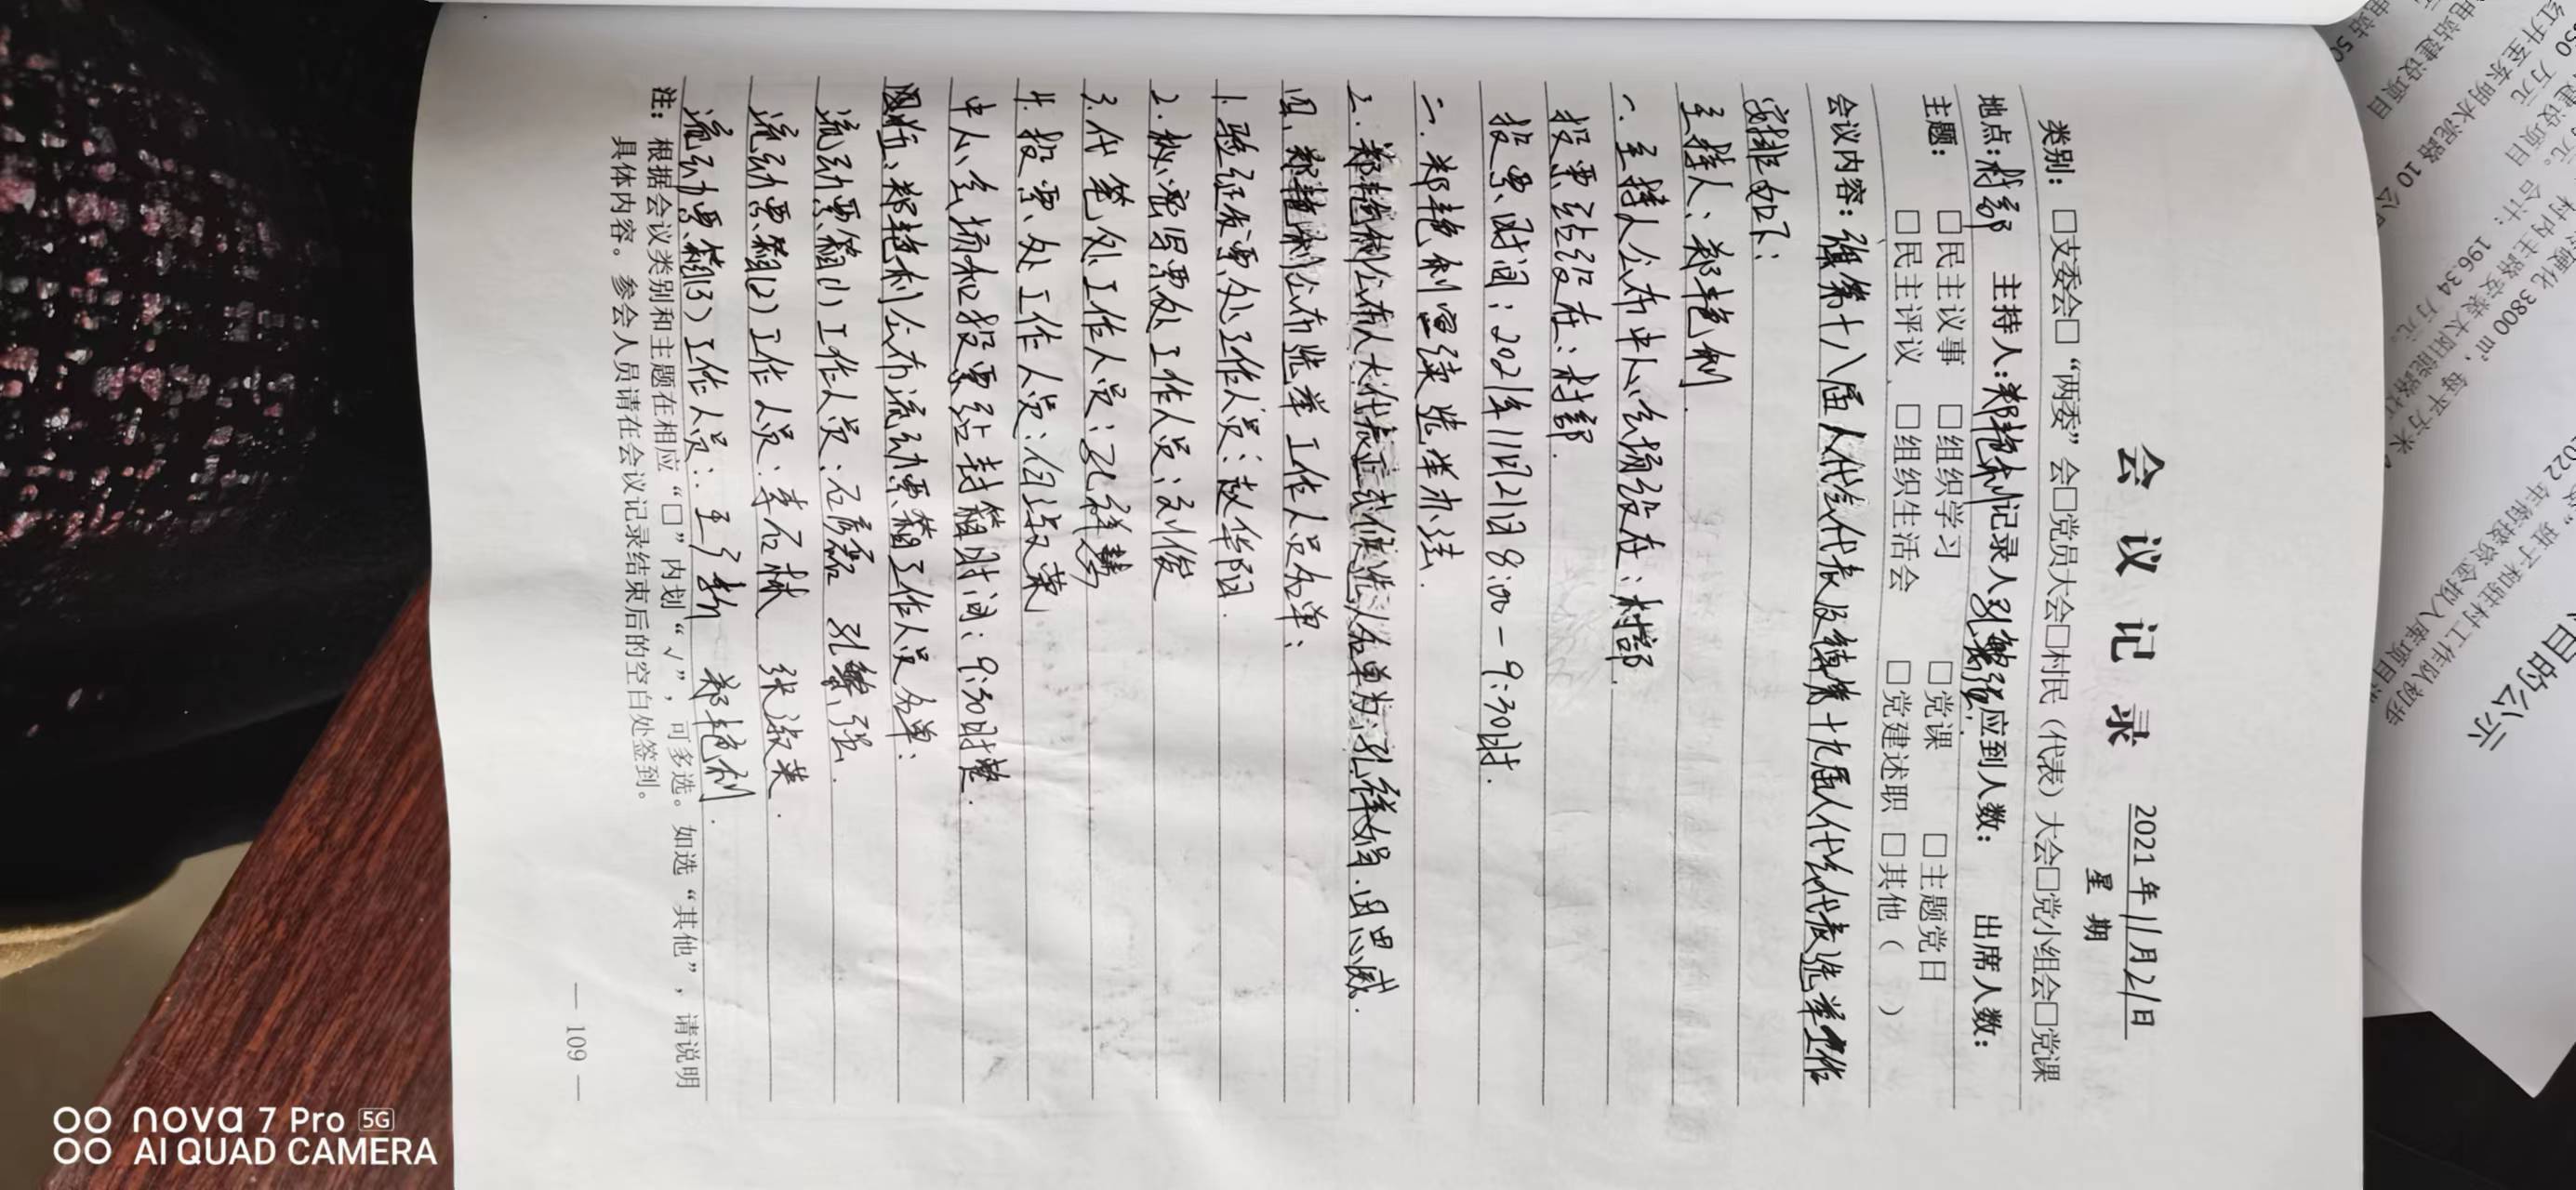 会 议 记 录
2021 年 11 月 21 日
星 期
类别：□支委会□“两委”会□党员大会□村民（代表）大会□党小组会□党课
地点：村部 主持人：郑艳利 记录人 应到人数： 出席人数：
主题： □民主议事 □组织学习 □党课 □主题党日
□民主评议 □组织生活会 □党建述职 □其他（ ）
会议内容：旗第十八届人代会代表及镇第十九届人代会代表选举工作
安排如下：
主持人：郑艳利.
一、主持人公布中心会场设在：村部.
投票站设在：村部.
投票时间：2021年11月21日 8:00－9:30时.
二、郑艳利宣读选举办法.
三、郑艳利公布人大代表正式候选人名单为：孔祥娟.田思威.
四、郑艳利公布选举工作人员名单：
1.验证发票处工作人员：赵华阳.
2.秘密写票处工作人员：刘俊
3.代笔处工作人员：孔祥
4.投票处工作人员：白淑荣
中心会场和投票站封箱时间：9:30时整.
郑艳利公布流动票箱工作人员名单：
流动票箱(1)工作人员：石彦磊 孔繁强.
流动票箱(2)工作人员：李石林 张淑英.
流动票箱(3)工作人员：王子新 郑艳利.
注：根据会议类别和主题在相应“□”内划“√”，可多选。如选“其他”，请说明
具体内容。参会人员请在会议记录结束后的空白处签到。
— 109 —
目的公示
nova 7 Pro 5G
AI QUAD CAMERA